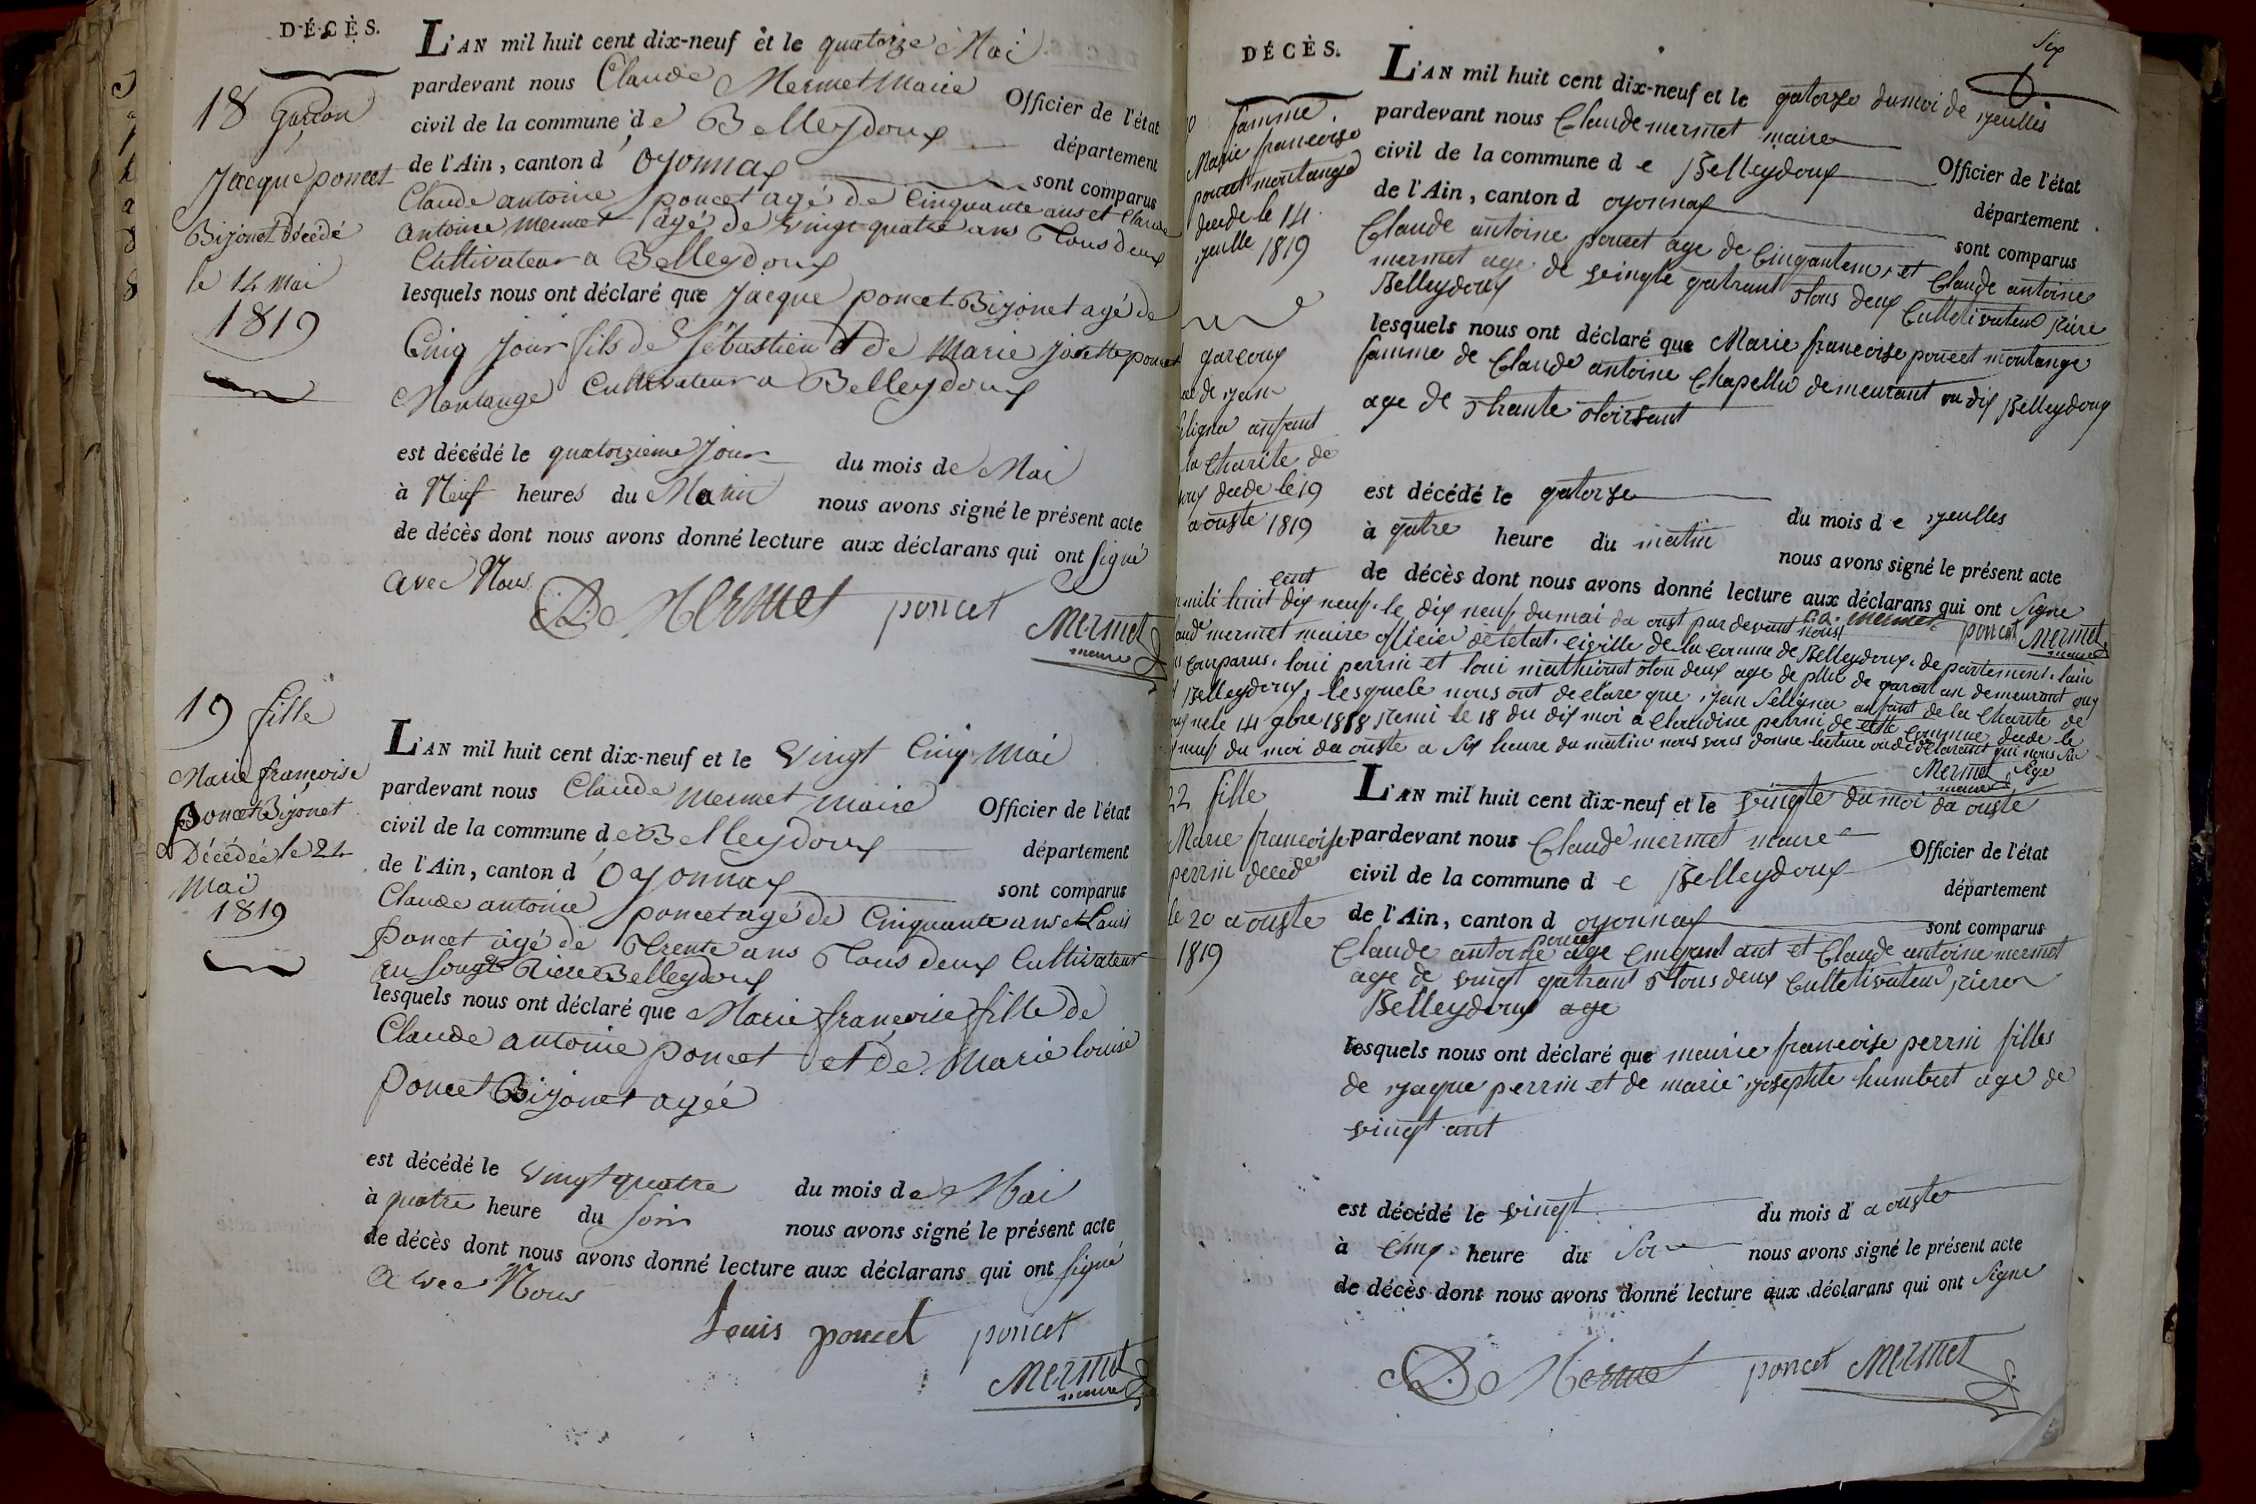 DÉCÈS.
18 Garcon
Jacque poncet
Bizonet Décédé
le 14 Mai
1819
L'AN mil huit cent dix-neuf et le quatorze Mai
pardevant nous Claude Mermet Maire
Officier de l'état
civil de la commune de Belleydoux
département
de l'Ain, canton d'Oyonnax
sont comparus
Claude antoine poncet agé de Cinquante ans et Claude
antoine Mermet agé de Vingt quatre ans Tous deux
Cultivateur a Belleydoux
lesquels nous ont déclaré que Jacque poncet Bizonet agé de
Cinq Jour fils de Sébastien et de Marie Josette poncet
Montange Cultivateur a Belleydoux
est décédé le quatorzieme Jour du mois de Mai
à Neuf heures du Matin nous avons signé le présent acte
de décès dont nous avons donné lecture aux déclarans qui ont Signé
avec Nous
Mermet poncet Mermet
maire
19 fille
Marie françoise
Poncet Bizonet
Décédée le 24
Mai
1819
L'AN mil huit cent dix-neuf et le Vingt Cinq Mai
pardevant nous Claude Mermet Maire
Officier de l'état
civil de la commune de Belleydoux
département
de l'Ain, canton d'Oyonnax
sont comparus
Claude antoine poncet agé de Cinquante ans et Louis
Poncet agé de Trente ans Tous deux Cultivateur
au Riere Belleydoux
lesquels nous ont déclaré que Marie françoise fille de
Claude antoine poncet et de Marie louise
Poncet Bizonet agée
est décédé le Vingt quatre du mois de Mai
à quatre heure du soir nous avons signé le présent acte
de décès dont nous avons donné lecture aux déclarans qui ont signé
avec Nous
Louis poncet poncet
Mermet
maire
Six
DÉCÈS.
famme
Marie francoise
poncet montange
decede le 14
yeulle 1819
L'AN mil huit cent dix-neuf et le qatorze du moi de yeulles
pardevant nous Claude mermet maire
Officier de l'état
civil de la commune d e Belleydoux
département
de l'Ain, canton d oyonnax
sont comparus
Claude antoine poncet age de Cinqantens et Claude antoine
mermet age de vingte qatrant tous deux Culletivateur riere
Belleydoux
lesquels nous ont déclaré que Marie francoise poncet montange
famme de Claude antoine Chapellu demeurant au dix Belleydoux
age de trante
est décédé le qatorze du mois d e yeulles
à qatre heure du matin nous avons signé le présent acte
de décès dont nous avons donné lecture aux déclarans qui ont Signe
mermet poncet Mermet
maire
garcoux
de yean
Seligna anfant
la Charite de
decede le 19
a ouste 1819
cent
mile huit dix neuf le dix neuf du moi da oust par devant nous
mermet maire oficie de letat civille de la comune de Belleydoux departement lain
comparus loui perrin et loui tou deux age de plus de garant an demeurant
Belleydoux lesquele nous ont declare que yean Seligna anfant de la Charite de
le 14 9bre 1818 remi le 18 du dix moi a Claudine perrin de comune decede le
neuf du moi da ouste a six heure du matin nous donne lecture
Mermet
maire
22 fille
Marie francoise
perrin decede
le 20 a ouste
1819
L'AN mil huit cent dix-neuf et le vingte du moi da ouste
pardevant nous Claude mermet maire
Officier de l'état
civil de la commune d e Belleydoux
département
de l'Ain, canton d oyonnax
sont comparus
poncet
Claude antoine age cinqant ant et Claude antoine mermet
age de vingt qatrant tous deux Culletivateur riere
Belleydoux age
lesquels nous ont déclaré que maurie francoise perrin filles
de yaque perrin et de marie yosephte humbert age de
vingt ant
est décédé le vingt du mois d a ouste
à Cinq heure du Soir nous avons signé le présent acte
de décès dont nous avons donné lecture aux déclarans qui ont Signe
Mermet poncet Mermet